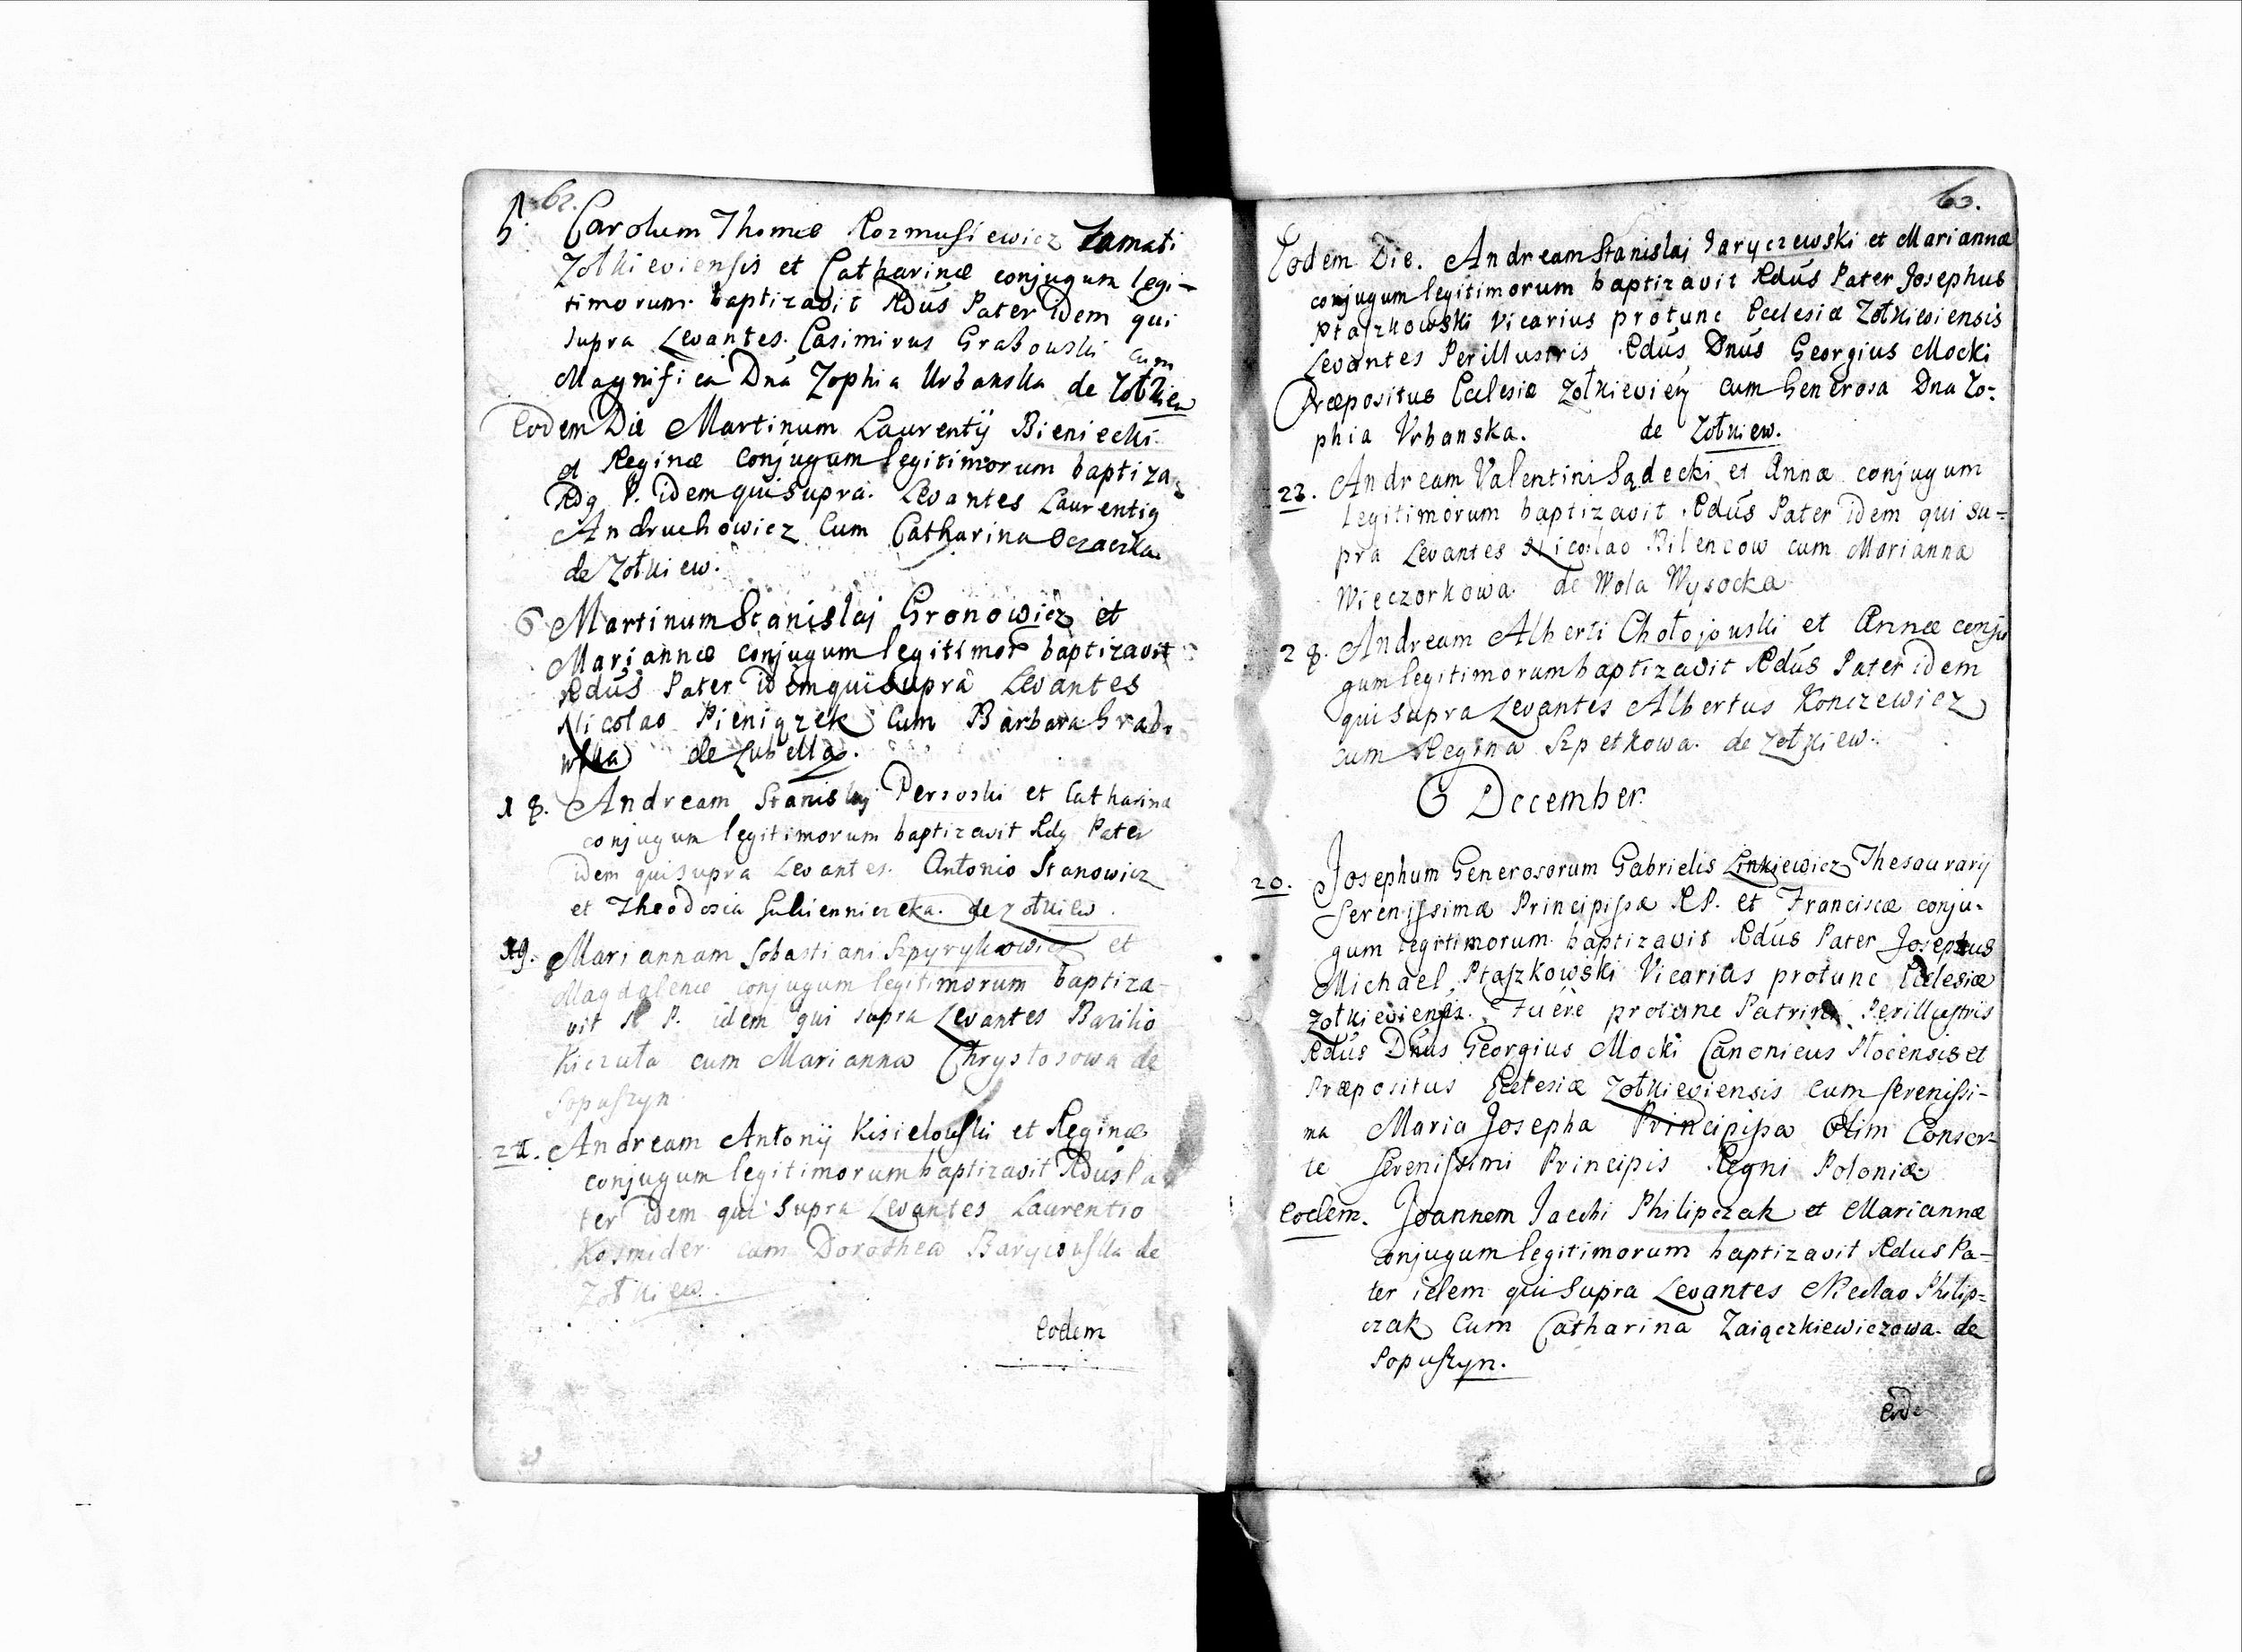 62.
5. Carolum Thomæ Rozmusiewicz Famati
Zołkieviensis et Catharinæ conjugum legi-
timorum baptizavit Rdūs Pater idem qui
supra Levantes. Casimirus Grabowski cum
Magnifica Dnā Zophia Urbanska de Zołkiew
Eodem Die Martinum Laurentij Bieniecki
et Reginæ conjugum legitimorum baptiza
Rdg P. idem qui supra. Levantes Laurentig
Andruchowicz Cum Catharina Oczaczka
de Zołkiew.
6 Martinum Stanislaj Gronowicz et
Mariannæ conjugum legitimor baptizavit
Rdūs Pater idem qui supra Levantes
Nicolao Pieniązek Cum Barbara Grabo
wska de Lubella.
18. Andream Stanislaj Perzoski et Catharina
conjugum legitimorum baptizavit Rdg Pater
idem qui supra Levantes. Antonio Stanowicz
et Theodosia de Zołkiew.
19. Mariannam Sobastiani Szpyrykowicz et
Magdalenæ conjugum legitimorum baptiza-
vit R P. idem qui supra Levantes Bazilio
Kiczuła cum Marianna Chrystosowa de
Sopuszyn
21. Andream Antonij Kisielouski et Reginæ
conjugum legitimorum baptizavit Rdūs Pa
ter idem qui supra Levantes Laurentio
Kosmider cum Dorothea Barycouska de
Zołkiew.
Eodem
63.
Eodem Die. Andream Stanislaj Jaryczewski et Mariannæ
conjugum legitimorum baptizavit Rdūs Pater Josephus
Ptaszkowski Vicarius protunc Eccelesiæ Zołkieviensis
Levantes Perillustris Rdūs Dnūs Georgius Mocki
Præpositus Eccelesiæ Zołkieviey cum Generosa Dna Zo-
phia Vrbanska. de Zołkiew.
23. Andream Valentini Sądecki et Annæ conjugum
legitimorum baptizavit Rdūs Pater idem qui su-
pra Levantes Nicolao Bilencow cum Marianna
Wieczorkowa. de Wola Wysocka
28. Andream Alberti Chołojouski et Annæ conju
gum legitimorum baptizavit Rdūs Pater idem
qui supra Levantes Albertus Konczewicz
cum Regina Szpetkowa. de Zołkiew.
December.
20. Josephum Generosorum Gabrielis Linkiewicz Thesaurarij
Serenissimæ Principissæ RP. et Franciscæ conju-
gum legitimorum baptizavit Rdūs Pater Josephus
Michael Ptaszkowski Vicarius protunc Ecclesiæ
Zołkieviensis. Fuēre protunc Patrini Perillustris
Rdūs Dnūs Georgius Mocki Canonicus Płocensis et
Præpositus Ecclesiæ Zołkieviensis cum serenissi-
ma Maria Josepha Principissa Olim Consor-
te Serenissimi Principis Regni Poloniæ
Eodem. Joannem Jacobi Philipczak et Mariannæ
conjugum legitimorum baptizavit Rdus Pa-
ter idem qui supra Levantes Nicolao Philip-
czak Cum Catharina Zaiączkiewiczowa. de
Sopuszyn.
Eode